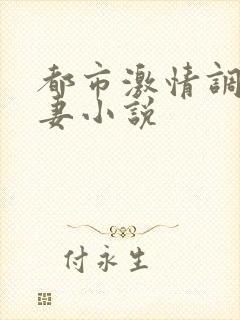 都市激情調
妻小説
付永生